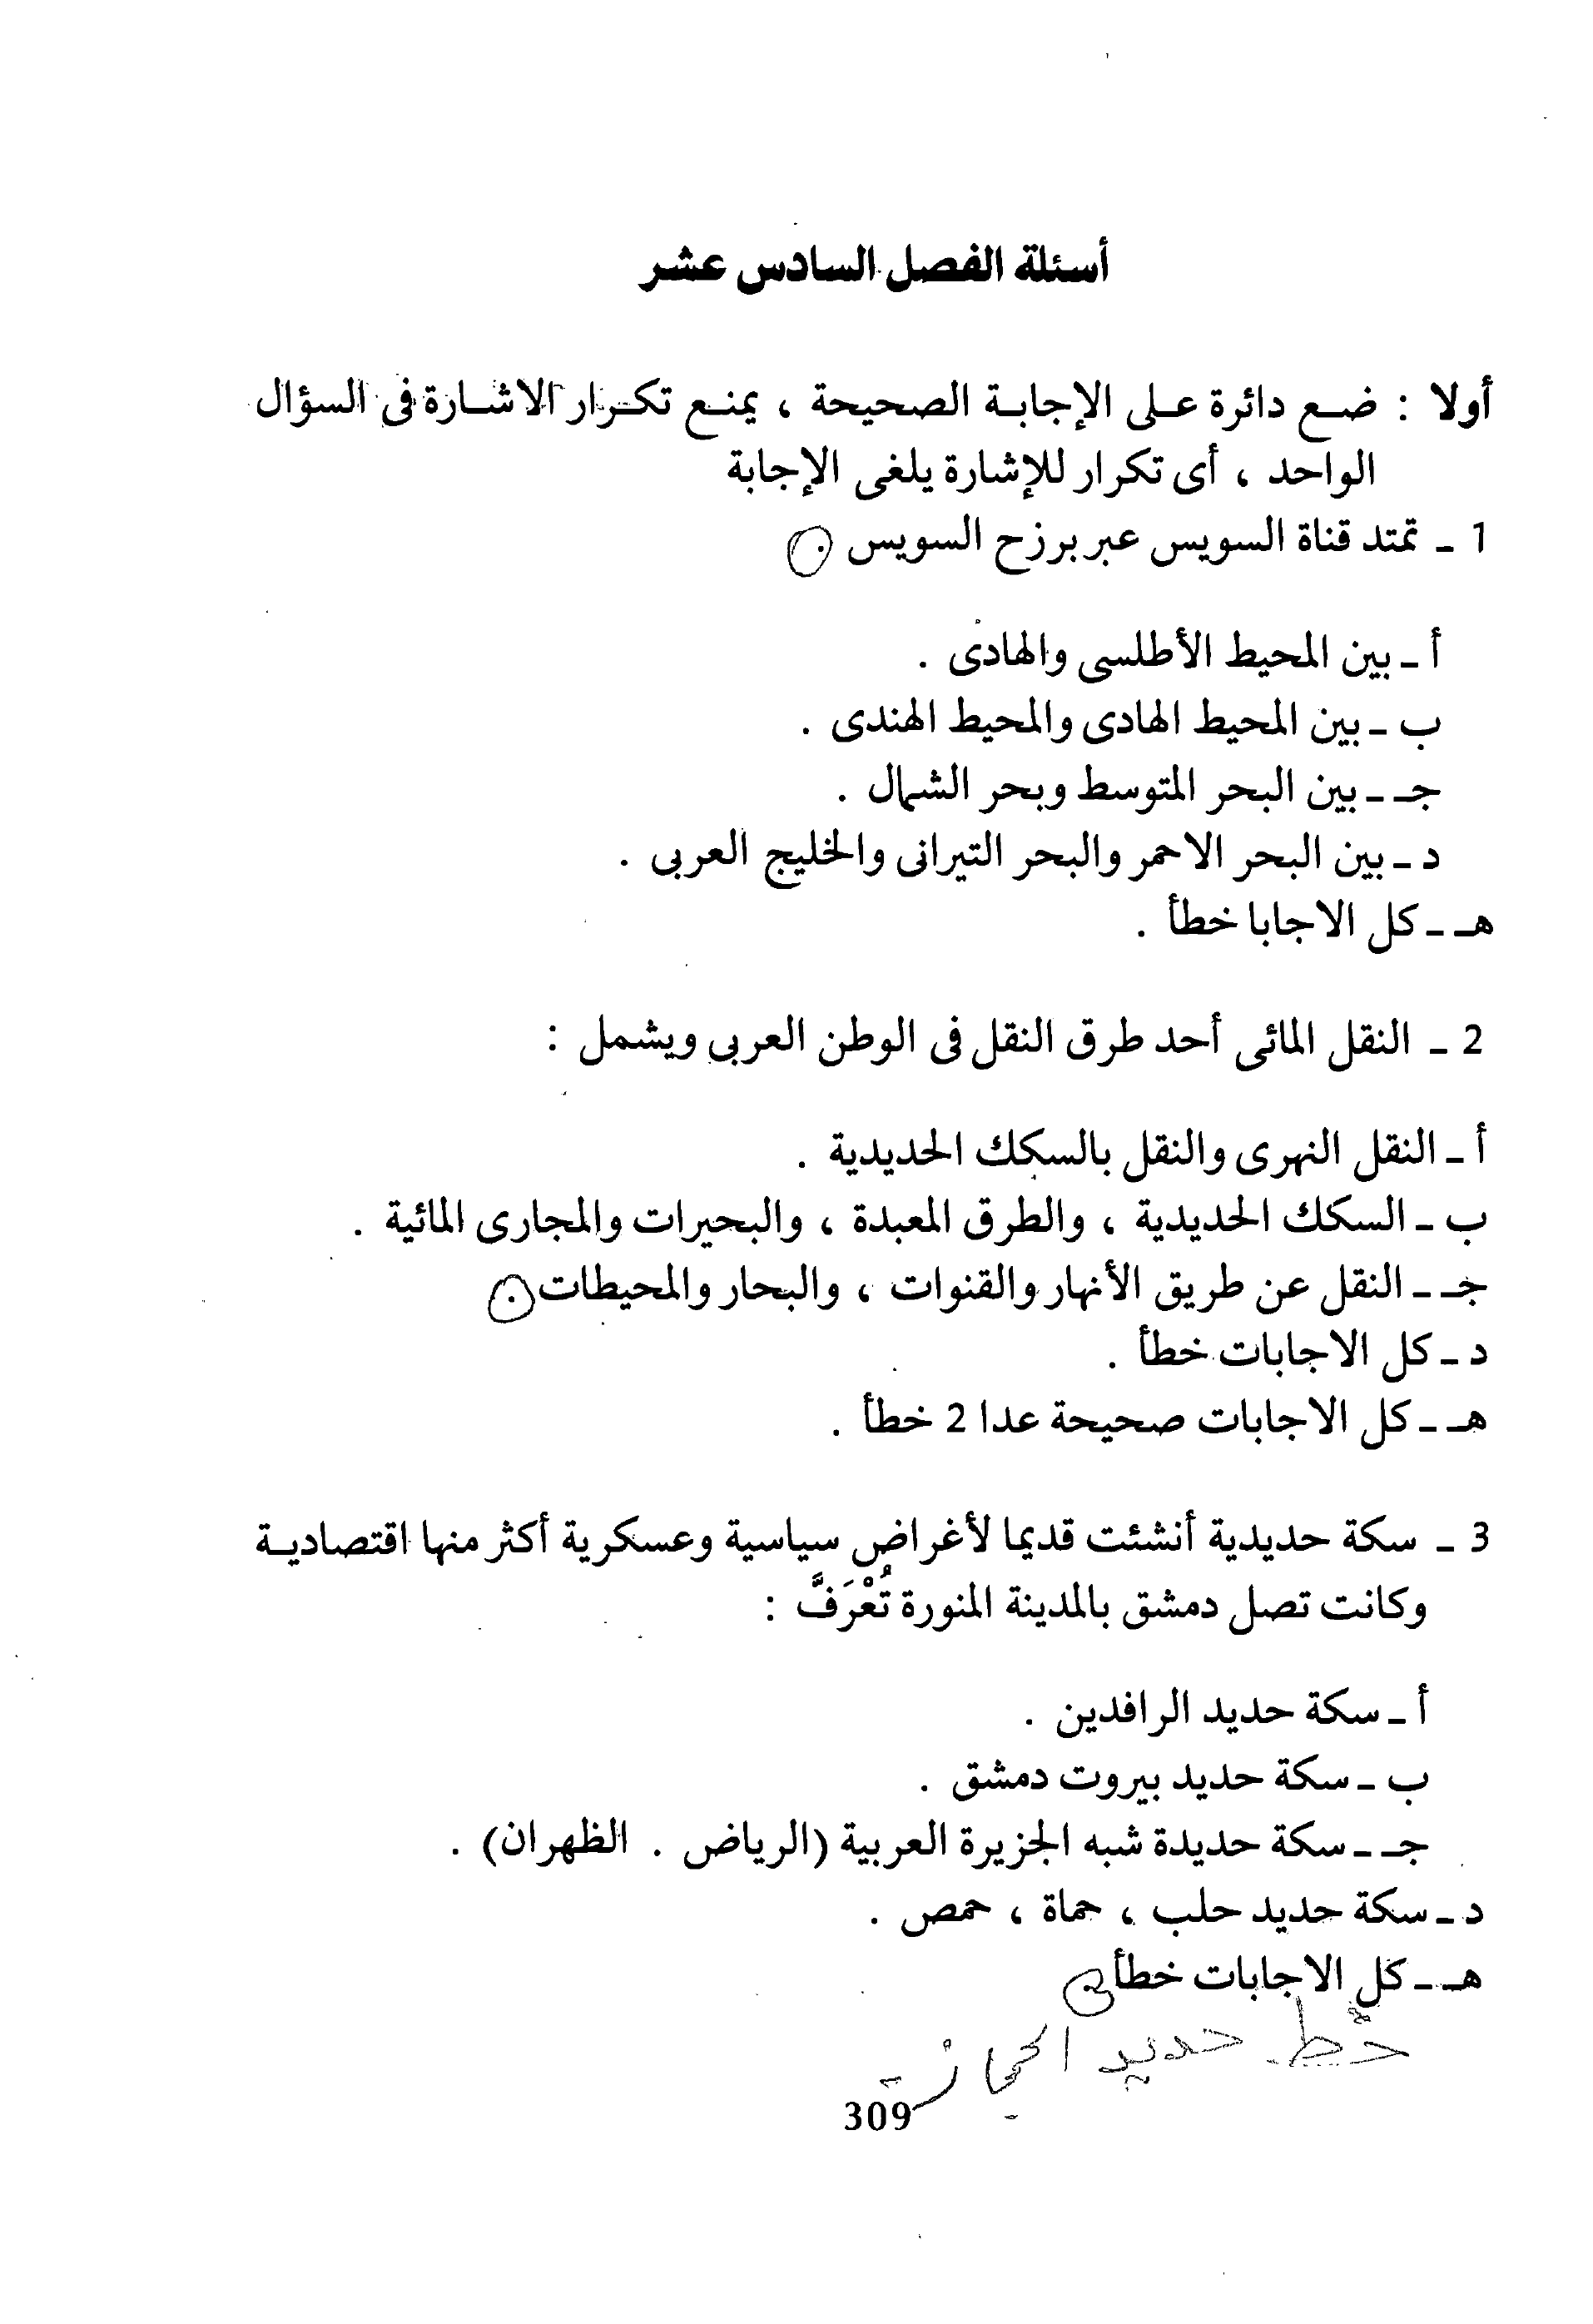 أسئلة الفصل السادس عشر
أولا : ضع دائرة على الإجابة الصحيحة ، يمنع تكرار الاشارة فى السؤال
الواحد ، أى تكرار للإشارة يلغى الإجابة
1 - تمتد قناة السويس عبر برزح السويس
أ - بين المحيط الأطلسى والهادى .
ب - بين المحيط الهادى والمحيط الهندى .
جـ - بين البحر المتوسط وبحر الشمال .
د - بين البحر الاحمر والبحر التيرانى والخليج العربى .
هـ - كل الاجابا خطأ .
2 - النقل المائى أحد طرق النقل فى الوطن العربى ويشمل :
أ - النقل النهرى والنقل بالسكك الحديدية .
ب - السكك الحديدية ، والطرق المعبدة ، والبحيرات والمجارى المائية .
جـ - النقل عن طريق الأنهار والقنوات ، والبحار والمحيطات .
د - كل الاجابات خطأ .
هـ - كل الاجابات صحيحة عدا 2 خطأ .
3 - سكة حديدية أنشئت قديما لأغراض سياسية وعسكرية أكثر منها اقتصادية
وكانت تصل دمشق بالمدينة المنورة تُعْرَفَّ :
أ - سكة حديد الرافدين .
ب - سكة حديد بيروت دمشق .
جـ - سكة حديدة شبه الجزيرة العربية (الرياض . الظهران) .
د - سكة حديد حلب ، حماة ، حمص .
هـ - كل الاجابات خطأ .
خط حديد الحجاز
309